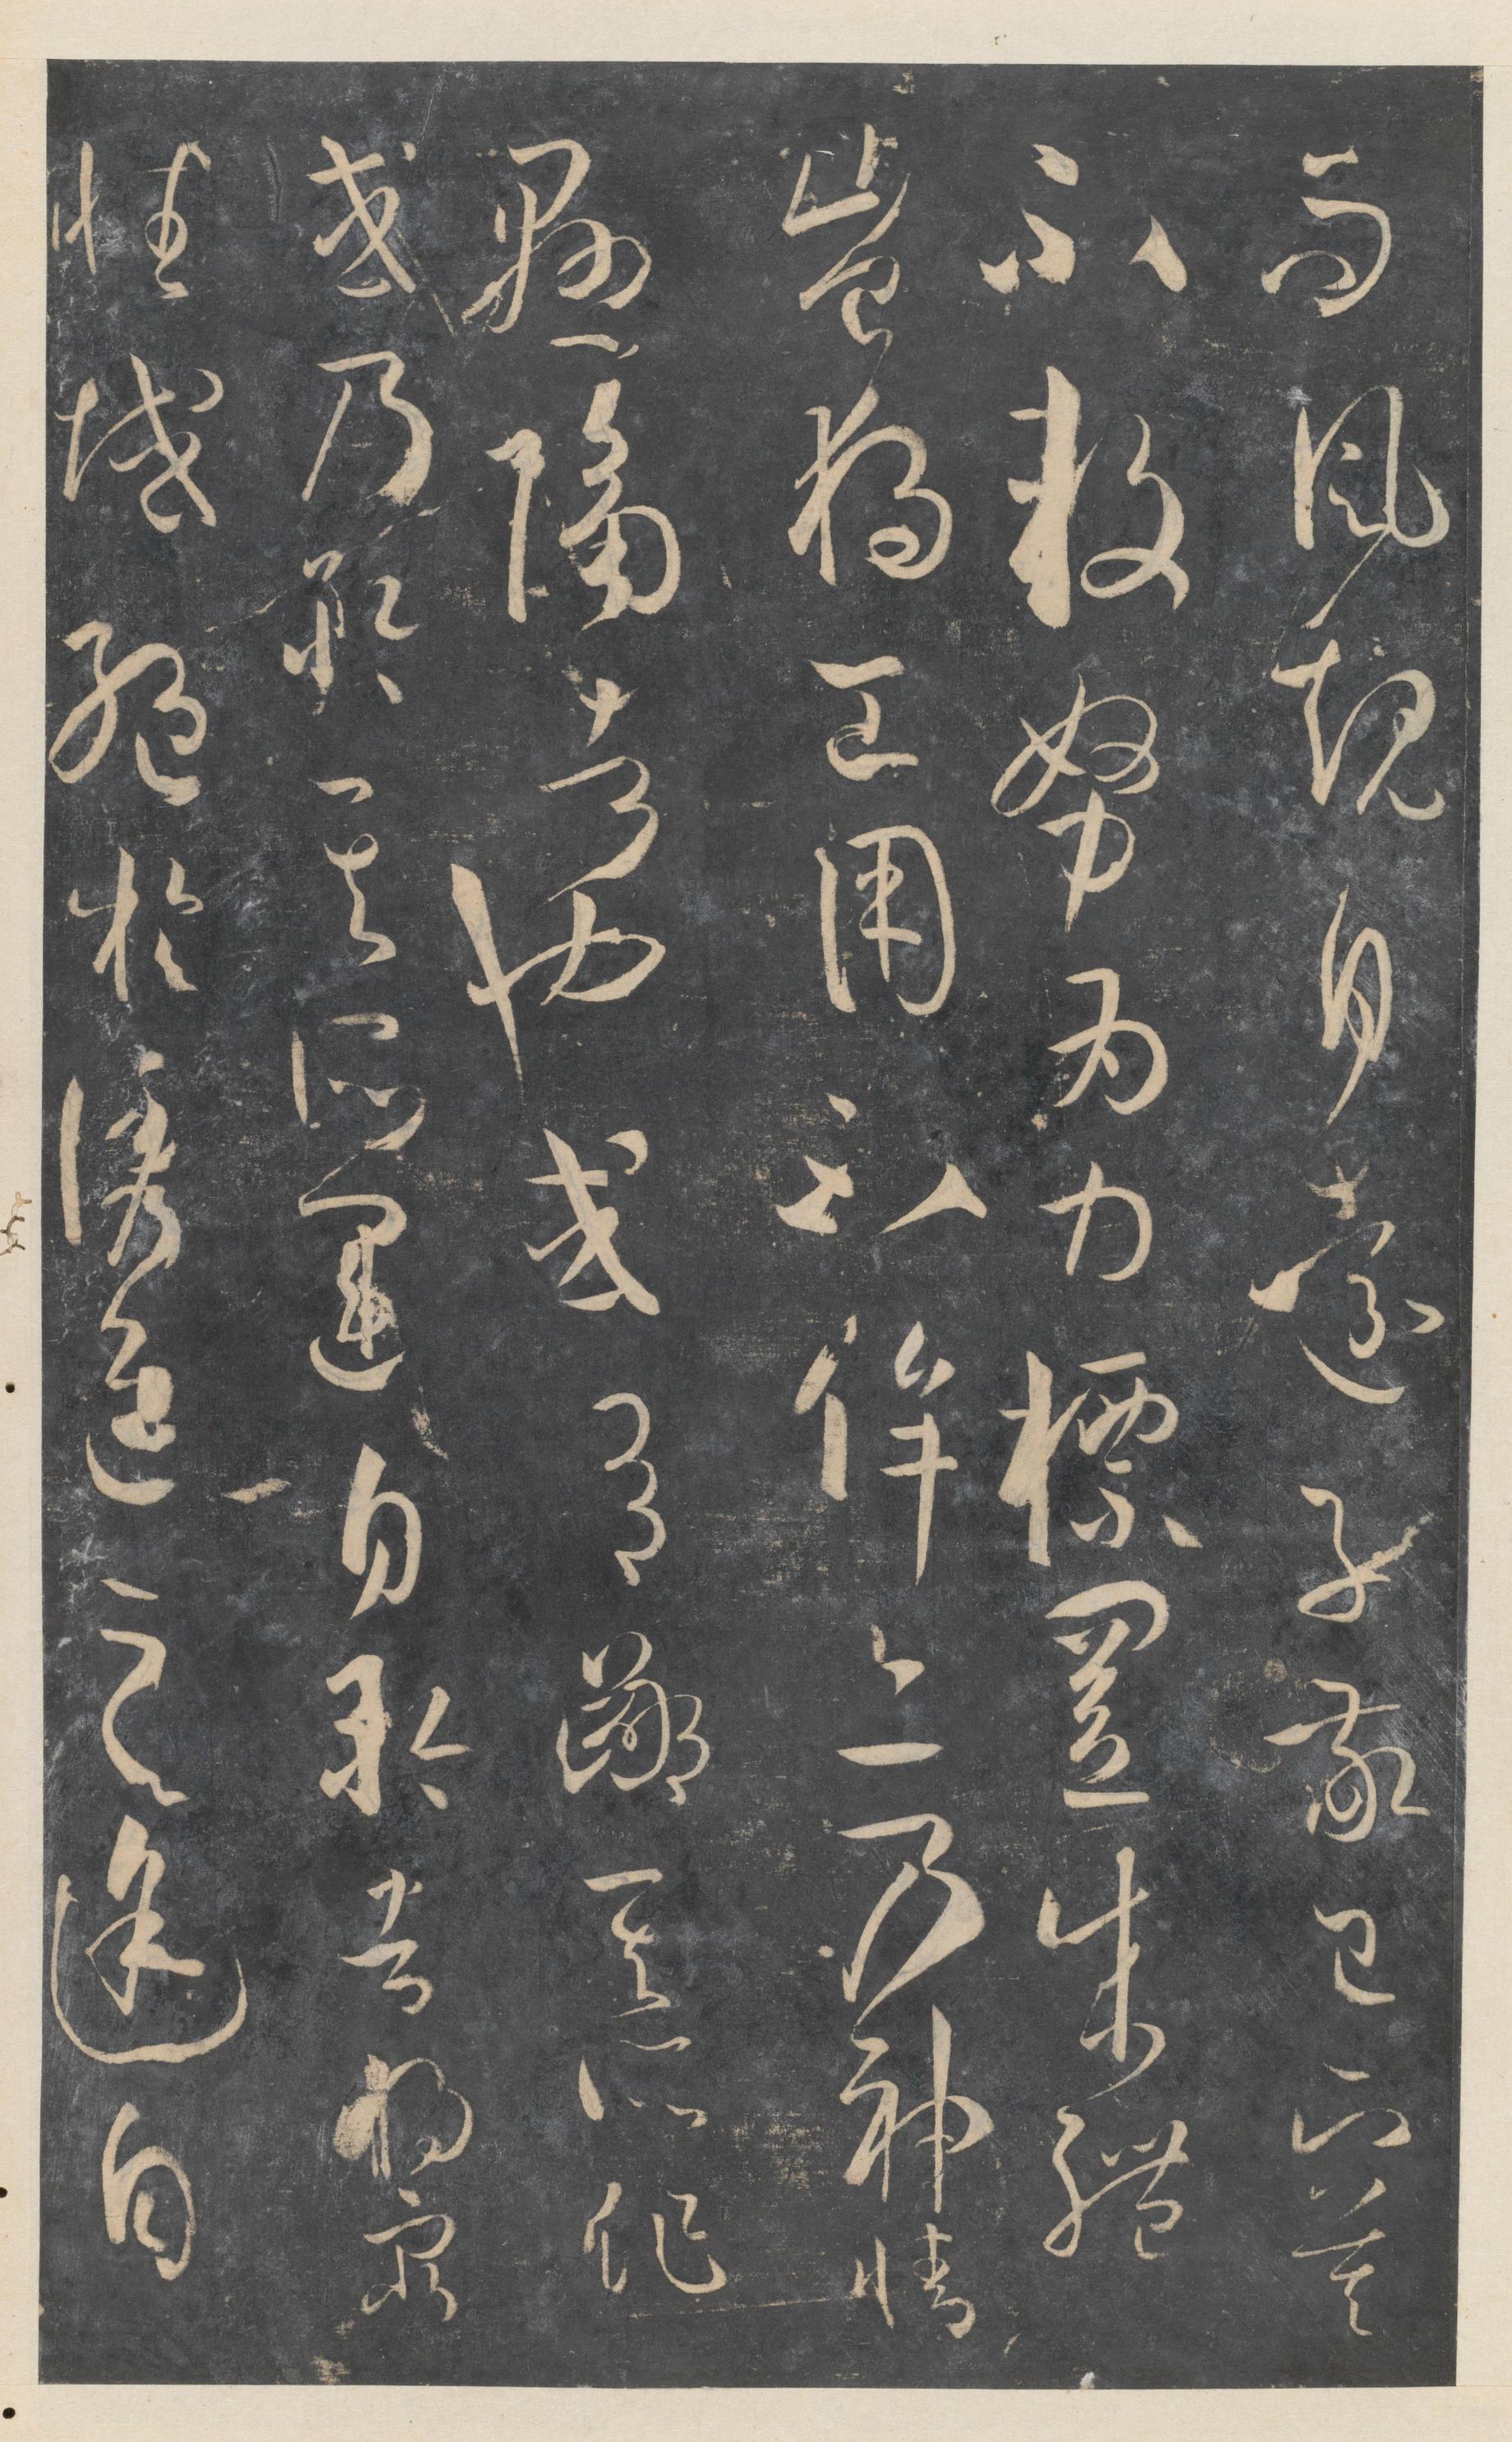 而風規自遠子敬已下莫
不鼓努為力標置成體
豈獨工用不侔亦乃神情
懸隔者也或有鄙其所作
或乃矜其所運自矜者將窮
性域絕於誘進之途自